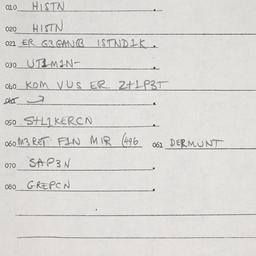 010 HISTN
020 HISTN
021 ER G3GANG ISTND1K.
030 UT1M1N-
040 KOM VUS ER Z+1P3T
050 S+L1KERCN
060 M3RET F1N MIR (496 061 DERMUNT
070 SAP3N
080 GREPCN